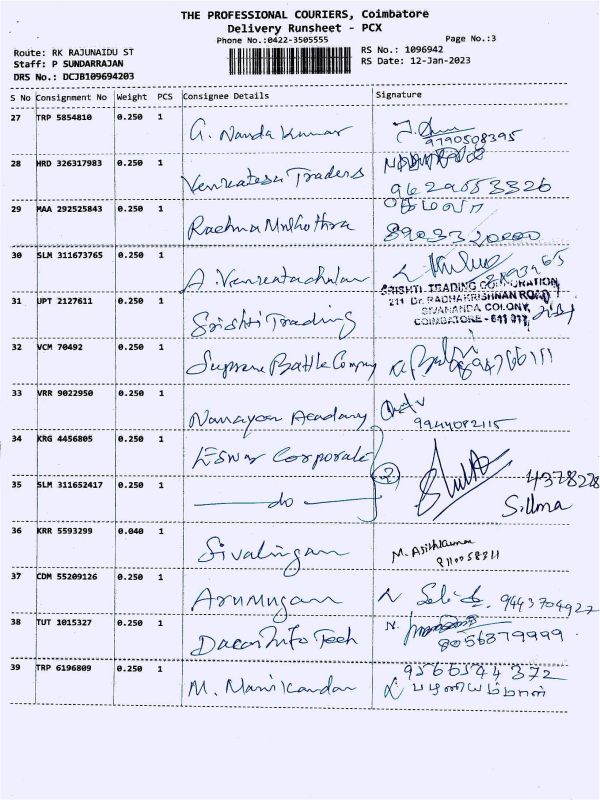 THE PROFESSIONAL COURIERS, Coimbatore
Delivery Runsheet - PCX
Phone No.:0422-3505555
Page No.:3
Route: RK RAJUNAIDU ST
Staff: P SUNDARRAJAN
DRS No.: DCJB109694203
RS No.: 1096942
RS Date: 12-Jan-2023
S No Consignment No Weight PCS Consignee Details Signature
27 TRP 5854810 0.250 1 G. Nanda Kumar
9790508395
28 HRD 326317983 0.250 1 Venkatesa Traders
9629553326
29 MAA 292525843 0.250 1 Rachna Malhothra
8903320000
30 SLM 311673765 0.250 1 A. Venkatachalam
SRISHTI TRADING CORPORATION
211 Dr. RADHAKRISHNAN ROAD
SIVANANDA COLONY,
COIMBATORE - 641 012
31 UPT 2127611 0.250 1 Srishti Trading
32 VCM 70492 0.250 1 Supreme Battle Company
33 VRR 9022950 0.250 1 Narayan Academy
9944082115
34 KRG 4456805 0.250 1 Eswar Corporate
2
35 SLM 311652417 0.250 1 do
4378228
36 KRR 5593299 0.040 1 Sivalingam
M. Ajithkumar
37 CDM 55209126 0.250 1 Arumugam
9443704927
38 TUT 1015327 0.250 1 Dacon Info Tech
8056879999
39 TRP 6196809 0.250 1 M. Manikandan
9566544372
பழனியம்மாள்